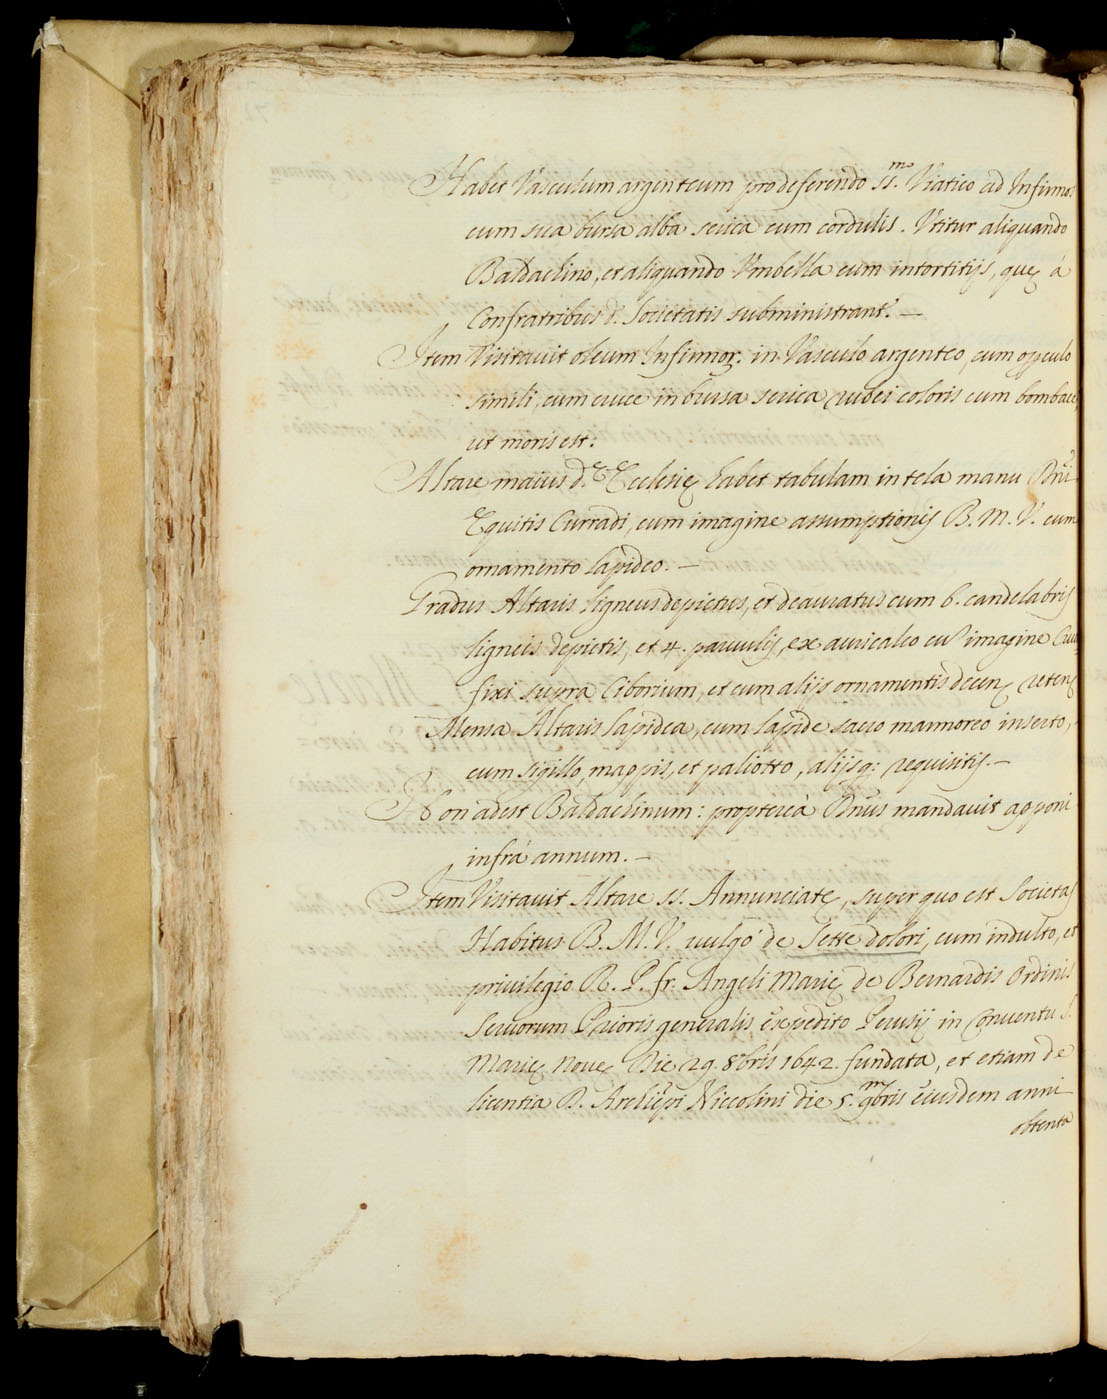 Habet Vasculum argenteum pro deferendo SS.mo Viatico ad Infirmo.
cum sua bursa alba serica cum cordulis. Vtitur aliquando
Baldachino, et aliquando Vmbella cum intortitijs, quę à
Confratribus d. Societatis subministrant.r —
Item Visitauit oleum Infirmor. in Vasculo argenteo, cum opculo
simili, cum cruce in bursa serica rubei coloris cum bombace,
ut moris est.
Altare maius d.ę Ecclesię habet tabulam in tela manu Dni
Equitis Curradi, cum imagine assumptionis B. M. V. cum
ornamento lapideo. —
Gradus Altaris ligneus depictus, et deauratus cum 6. candelabris
ligneis depictis, et 4. paruulis, ex auricalco cu imagine Cruci
fixi supra Ciborium, et cum alijs ornamentis
Mensa Altaris lapidea, cum lapide sacro marmoreo inserto,
cum sigillo, mappis, et paliotto, alijsq: requisitis. —
Non adest Baldachinum: propterea Dnus mandauit apponi
infrà annum. —
Item Visitauit Altare SS. Annunciatę, super quo est Societas
Habitus B. M. V. uulgò de Sette dolori, cum indulto, et
priuilegio R. P. fr. Angeli Marię de Bernardis Ordinis
Seruorum Prioris generalis expedito Perusij in Conuentu S.
Marię Nouę Die 29. 8bris 1642. fundata, et etiam de
licentia D. Archiepi Niccolini die 5. 9mbris eiusdem anni
obtenta